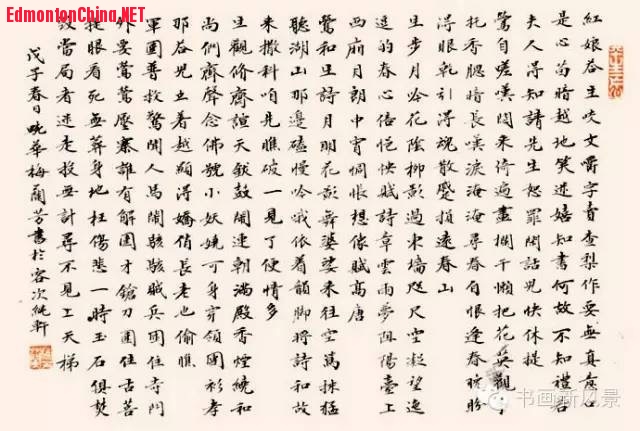 EdmontonChina.NET
紅娘咨主咬文嚼字賣查梨作耍無真意
是心苗暗越地笑述嬉知書何故不知禮君
夫人得知請先生恕罪閒話兒快休提
驚自嗟嘆閒來倚遍畫闌干懶把花英觀
托香腮暗長嘆淚淹淹尋春自恨逢春晚
得眼乾引得魂散蹙損遠春山
生步月吟花陰柳影過東墻咫尺空凝望
逗的春心倍怏怏賦詩章雲雨夢阻陽臺上
西廂月朗中宵惆悵想像賦高唐
鶯和生詩月明花影舞婆娑來往空萬拙猛
聽湖山那邊磕慢吟哦依着韻脚將詩和故
來撒科咱先瞧破一見了便情多
生觀修齋誼天鈸鼓鬧連朝滿殿香煙繞和
尚們齊聲念佛號小妖嬈可身穿領團衫孝
那答兒立着越顯得嬌俏長老也偷瞧
軍圍普救驚閧人馬鬧駭駭賊兵圍住寺門
外要鶯鶯壓寨誰有解圍才鎗刀圍住古菩
提眼看死無葬身地枉傷悲一時玉石俱焚
故當局者迷走投無計尋不見上天梯
戊子春日 晼華梅蘭芳書於客次純軒
书画新风景